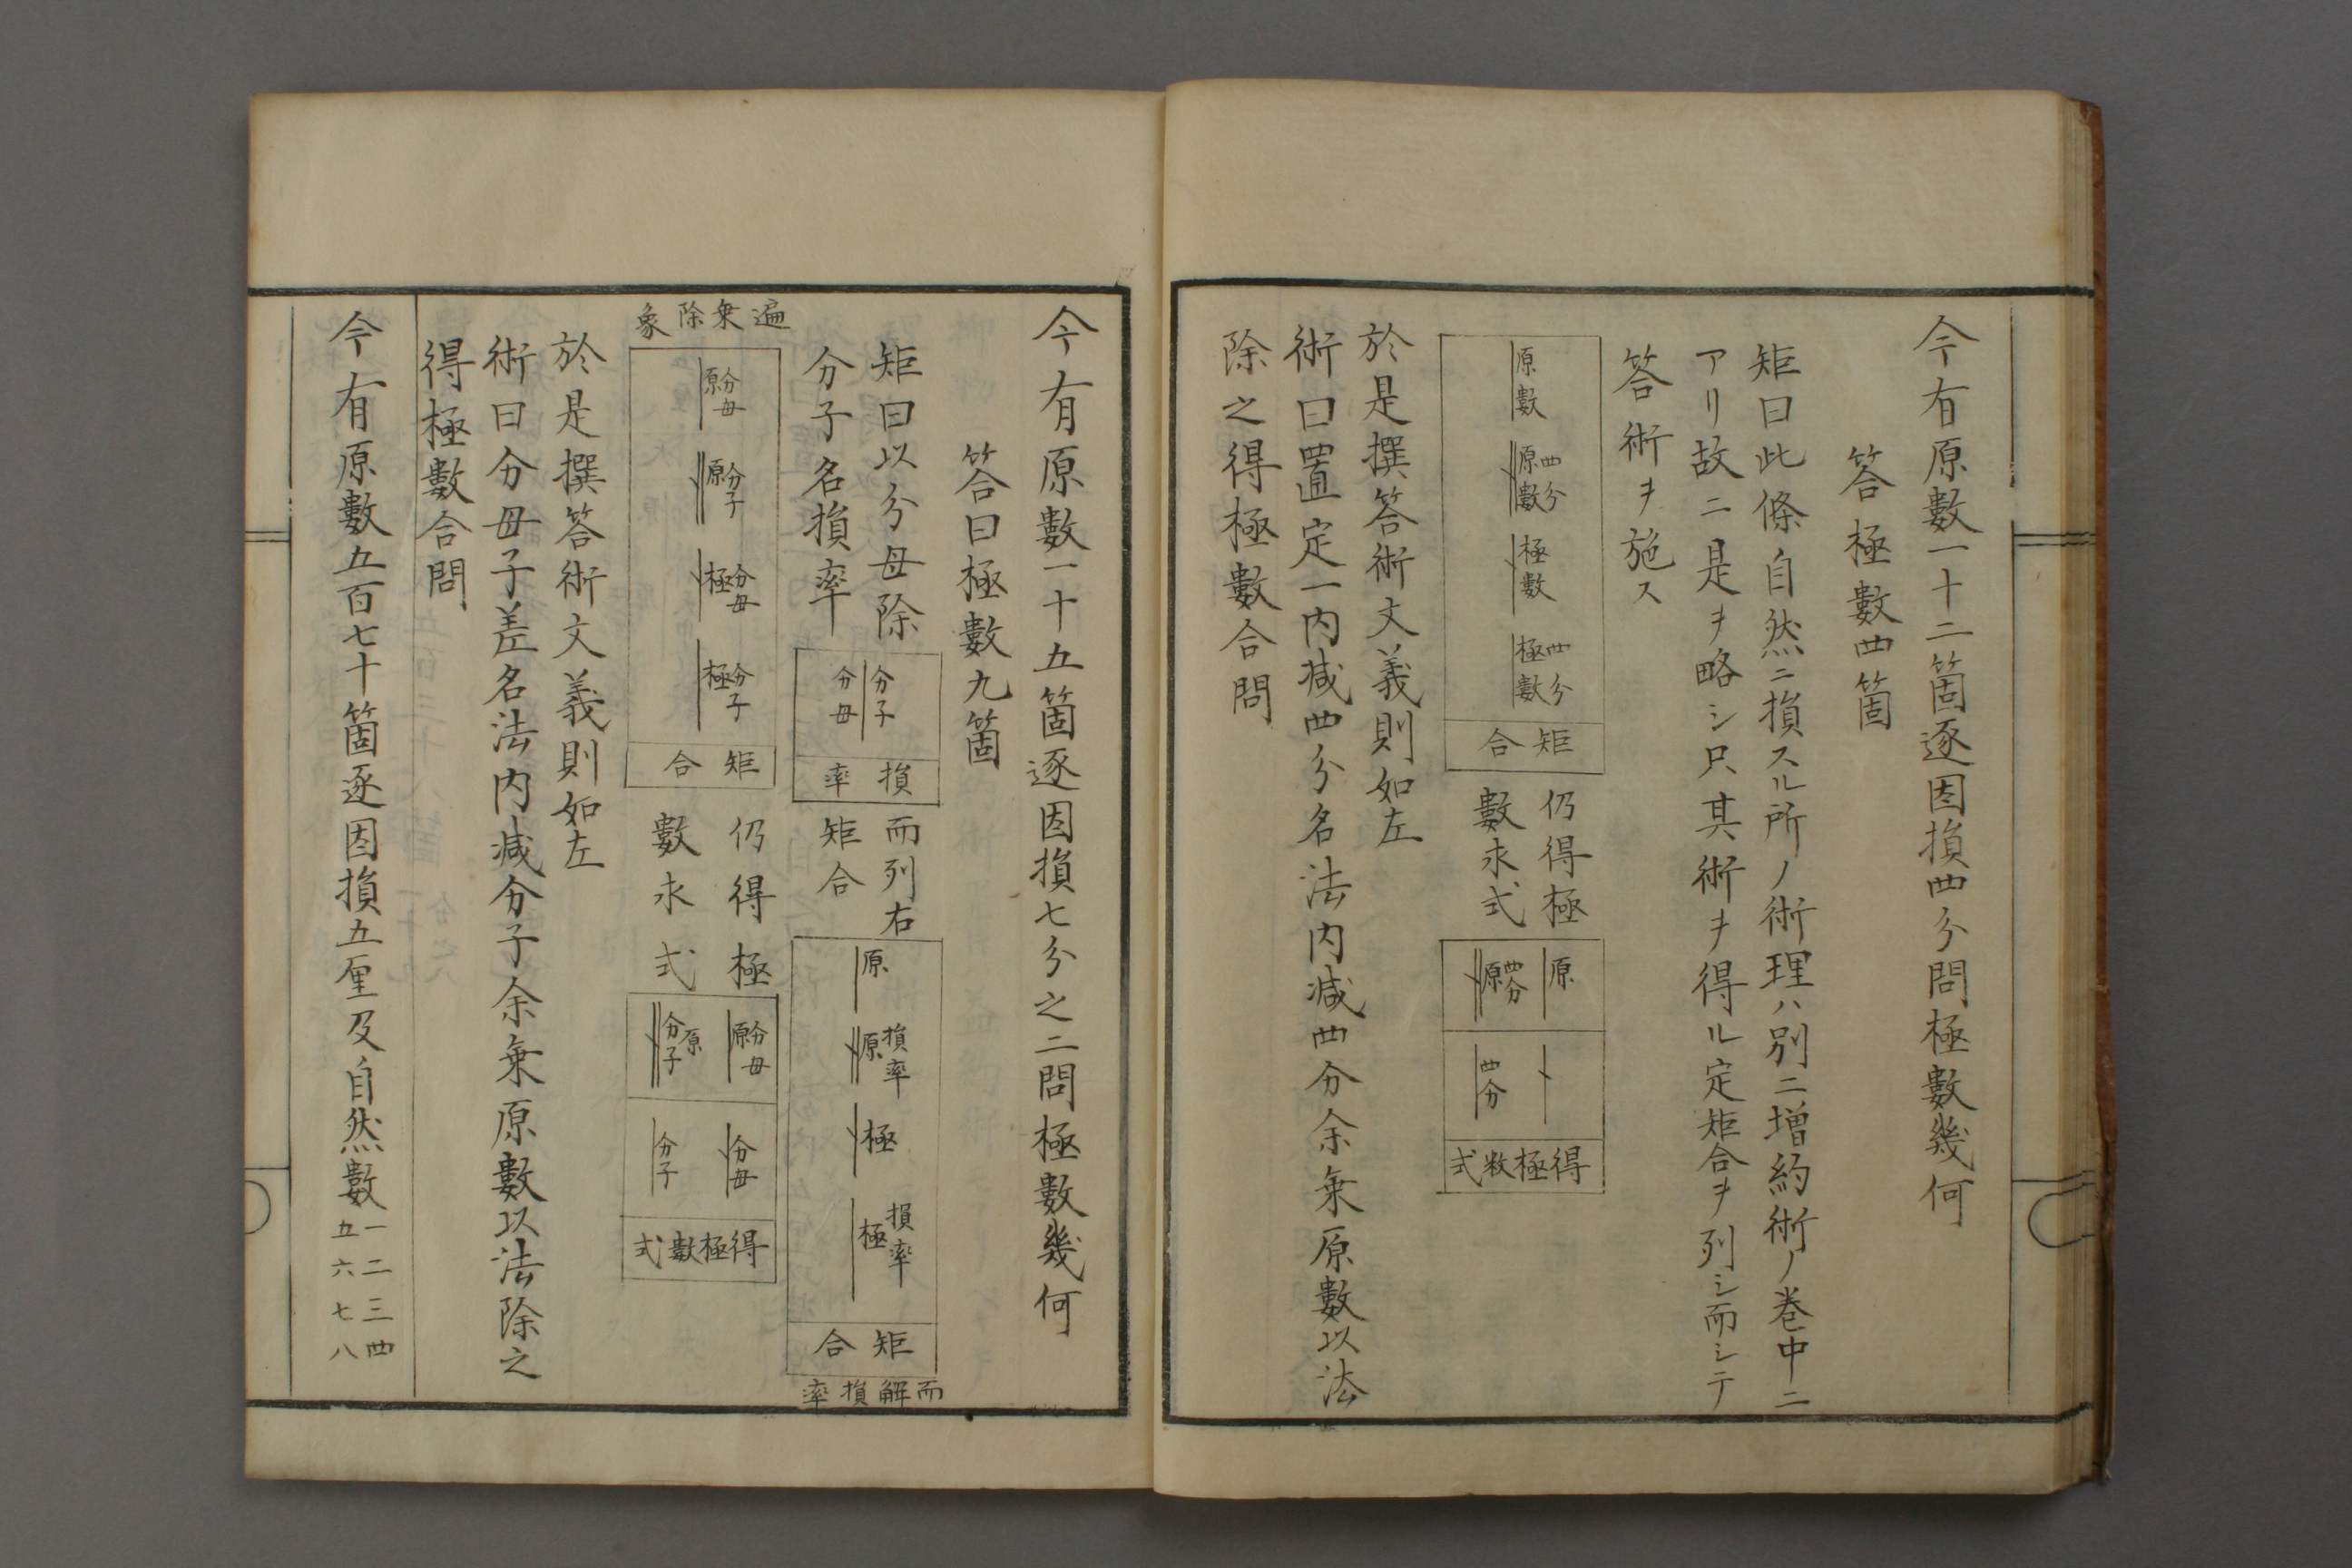 今有原數一十二箇逐因損四分問極數幾何
答極數四箇
矩曰此條自然ニ損スル所ノ術理ハ別ニ増約術ノ巻中ニ
アリ故ニ是ヲ略シ只其術ヲ得ル定矩合ヲ列シ而シテ
答術ヲ施ス
原數
四分
原數
極數
四分
極數
矩合
仍得極
數求式
原
四分
原
四分
得極數式
於是撰答術文義則如左
術曰置定一内减四分名法内减四分余乗原數以法
除之得極數合問
今有原數一十五箇逐因損七分之二問極數幾何
答曰極數九箇
矩曰以分母除
分子名損率
分子
分母
損率
而列右
矩合
原
損率
原
極
損率
極
矩合
而解損率
遍乗除象
分母
原
分子
原
分母
極
分子
極
矩合
仍得極
數求式
分母
原
原
分子
分母
分子
得極數式
於是撰答術文義則如左
術曰分母子差名法内减分子余乗原數以法除之
得極數合問
今有原數五百七十箇逐因損五厘及自然數一二三四
五六七八